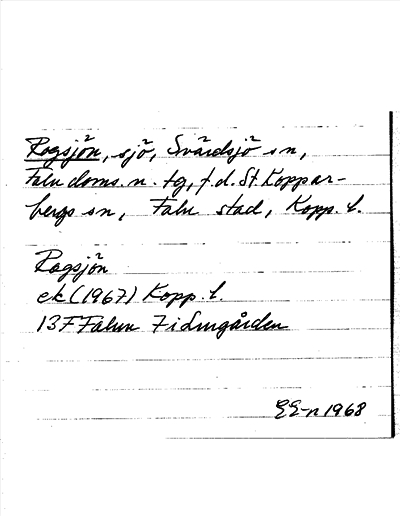 Rogsjön, sjö, Svärdsjö sn,
Falu doms. n. tg, f.d. St. Koppar-
bergs sn, Falu stad, Kopp. l.
Rogsjön
ek (1967) Kopp. l.
13F Falun 7i Lurgården
EE-n 1968